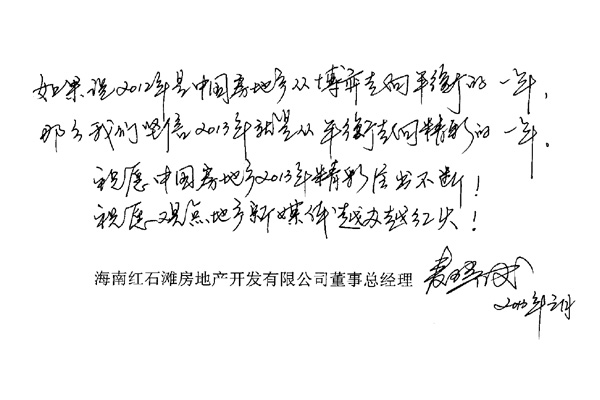 如果说2012年是中国房地产从博弈走向平衡的一年，
那么我们坚信2013年就是从平衡走向精彩的一年。
祝愿中国房地产2013年精彩层出不断！
祝愿观点地产新媒体越办越红火！
海南红石滩房地产开发有限公司董事总经理
2013年元月